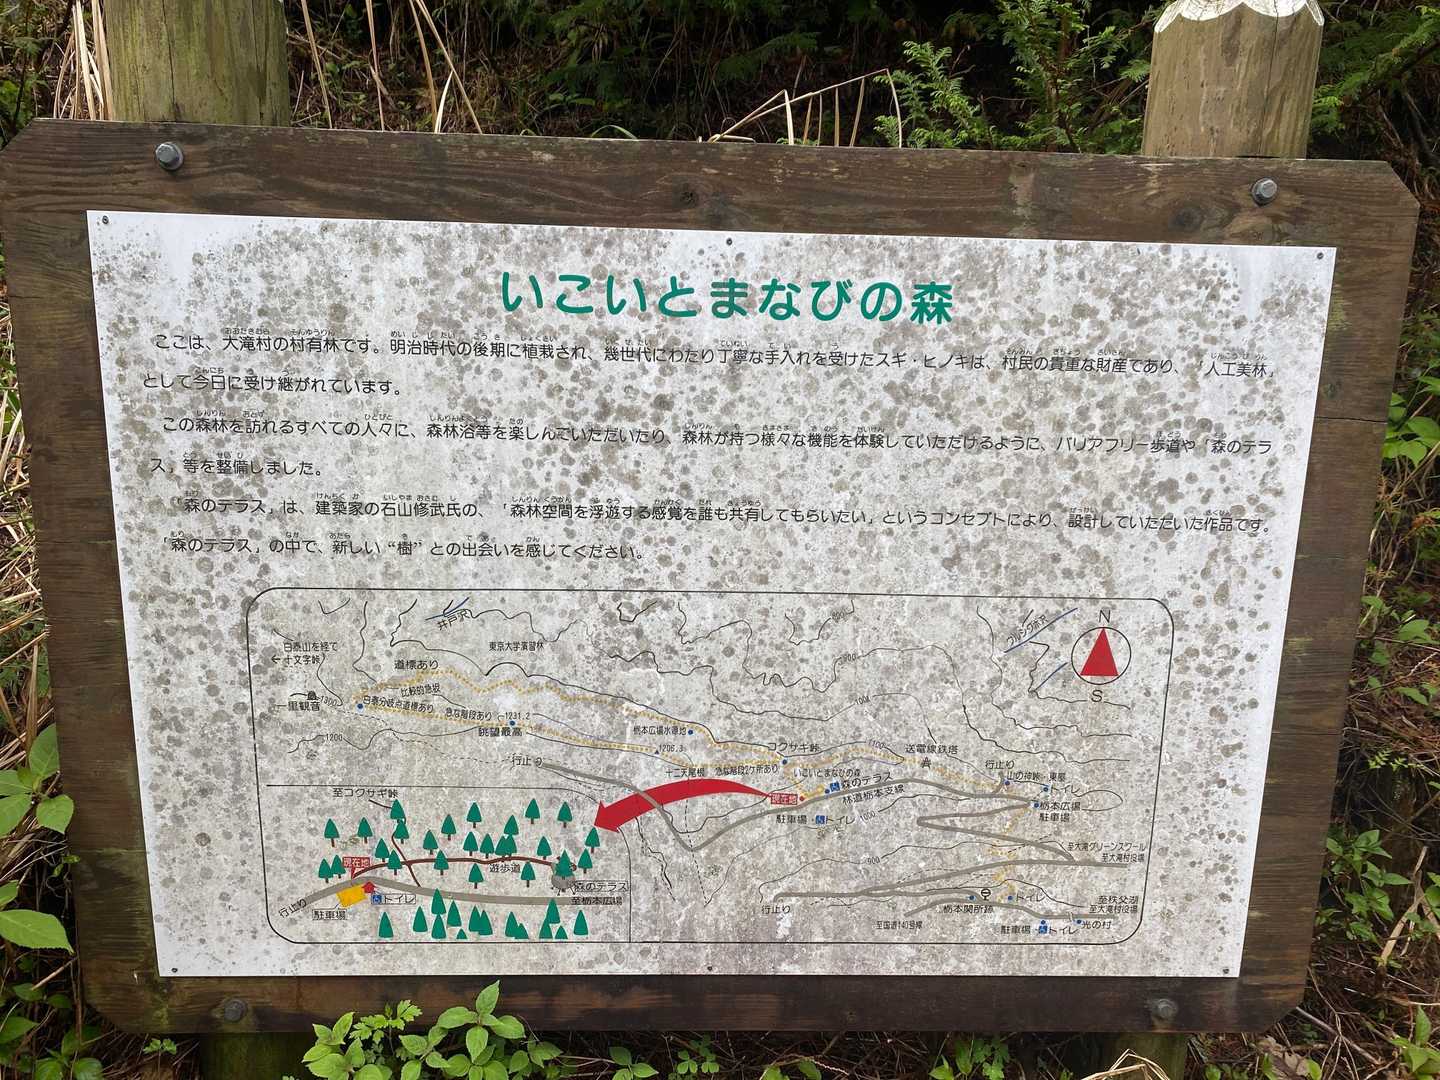 いこいとまなびの森
ここは、大滝村の村有林です。明治時代の後期に植栽され、幾世代にわたり丁寧な手入れを受けたスギ・ヒノキは、村民の貴重な財産であり、「人工美林」
として今日に受け継がれています。
この森林を訪れるすべての人々に、森林浴等を楽しんでいただいたり、森林が持つ様々な機能を体験していただけるように、バリアフリー歩道や「森のテラ
ス」等を整備しました。
「森のテラス」は、建築家の石山修武氏の、「森林空間を浮遊する感覚を誰も共有してもらいたい」というコンセプトにより、設計していただいた作品です。
「森のテラス」の中で、新しい“樹”との出会いを感じてください。
井戸沢
東京大学演習林
900
N
S
白泰山を経て
←十文字峠
道標あり
比較的急坂
一里観音
1300
白泰分岐点道標あり
急な階段あり
1231.2
眺望最高
栃本広場水源地
1206.3
1200
コクサギ峠
1100
送電線鉄塔
行止り
十二天尾根
急な階段2ケ所あり
いこいとまなびの森
森のテラス
現在地
林道栃本支線
行止り
山の神峠・東屋
トイレ
栃本広場
駐車場
駐車場・トイレ
1000
900
至大滝グリーンスクール
至大滝村役場
至コクサギ峠
現在地
遊歩道
森のテラス
至栃本広場
行止り
駐車場
トイレ
行止り
栃本関所跡
トイレ
至秩父湖
至大滝村役場
至国道140号線
駐車場・トイレ
光の村